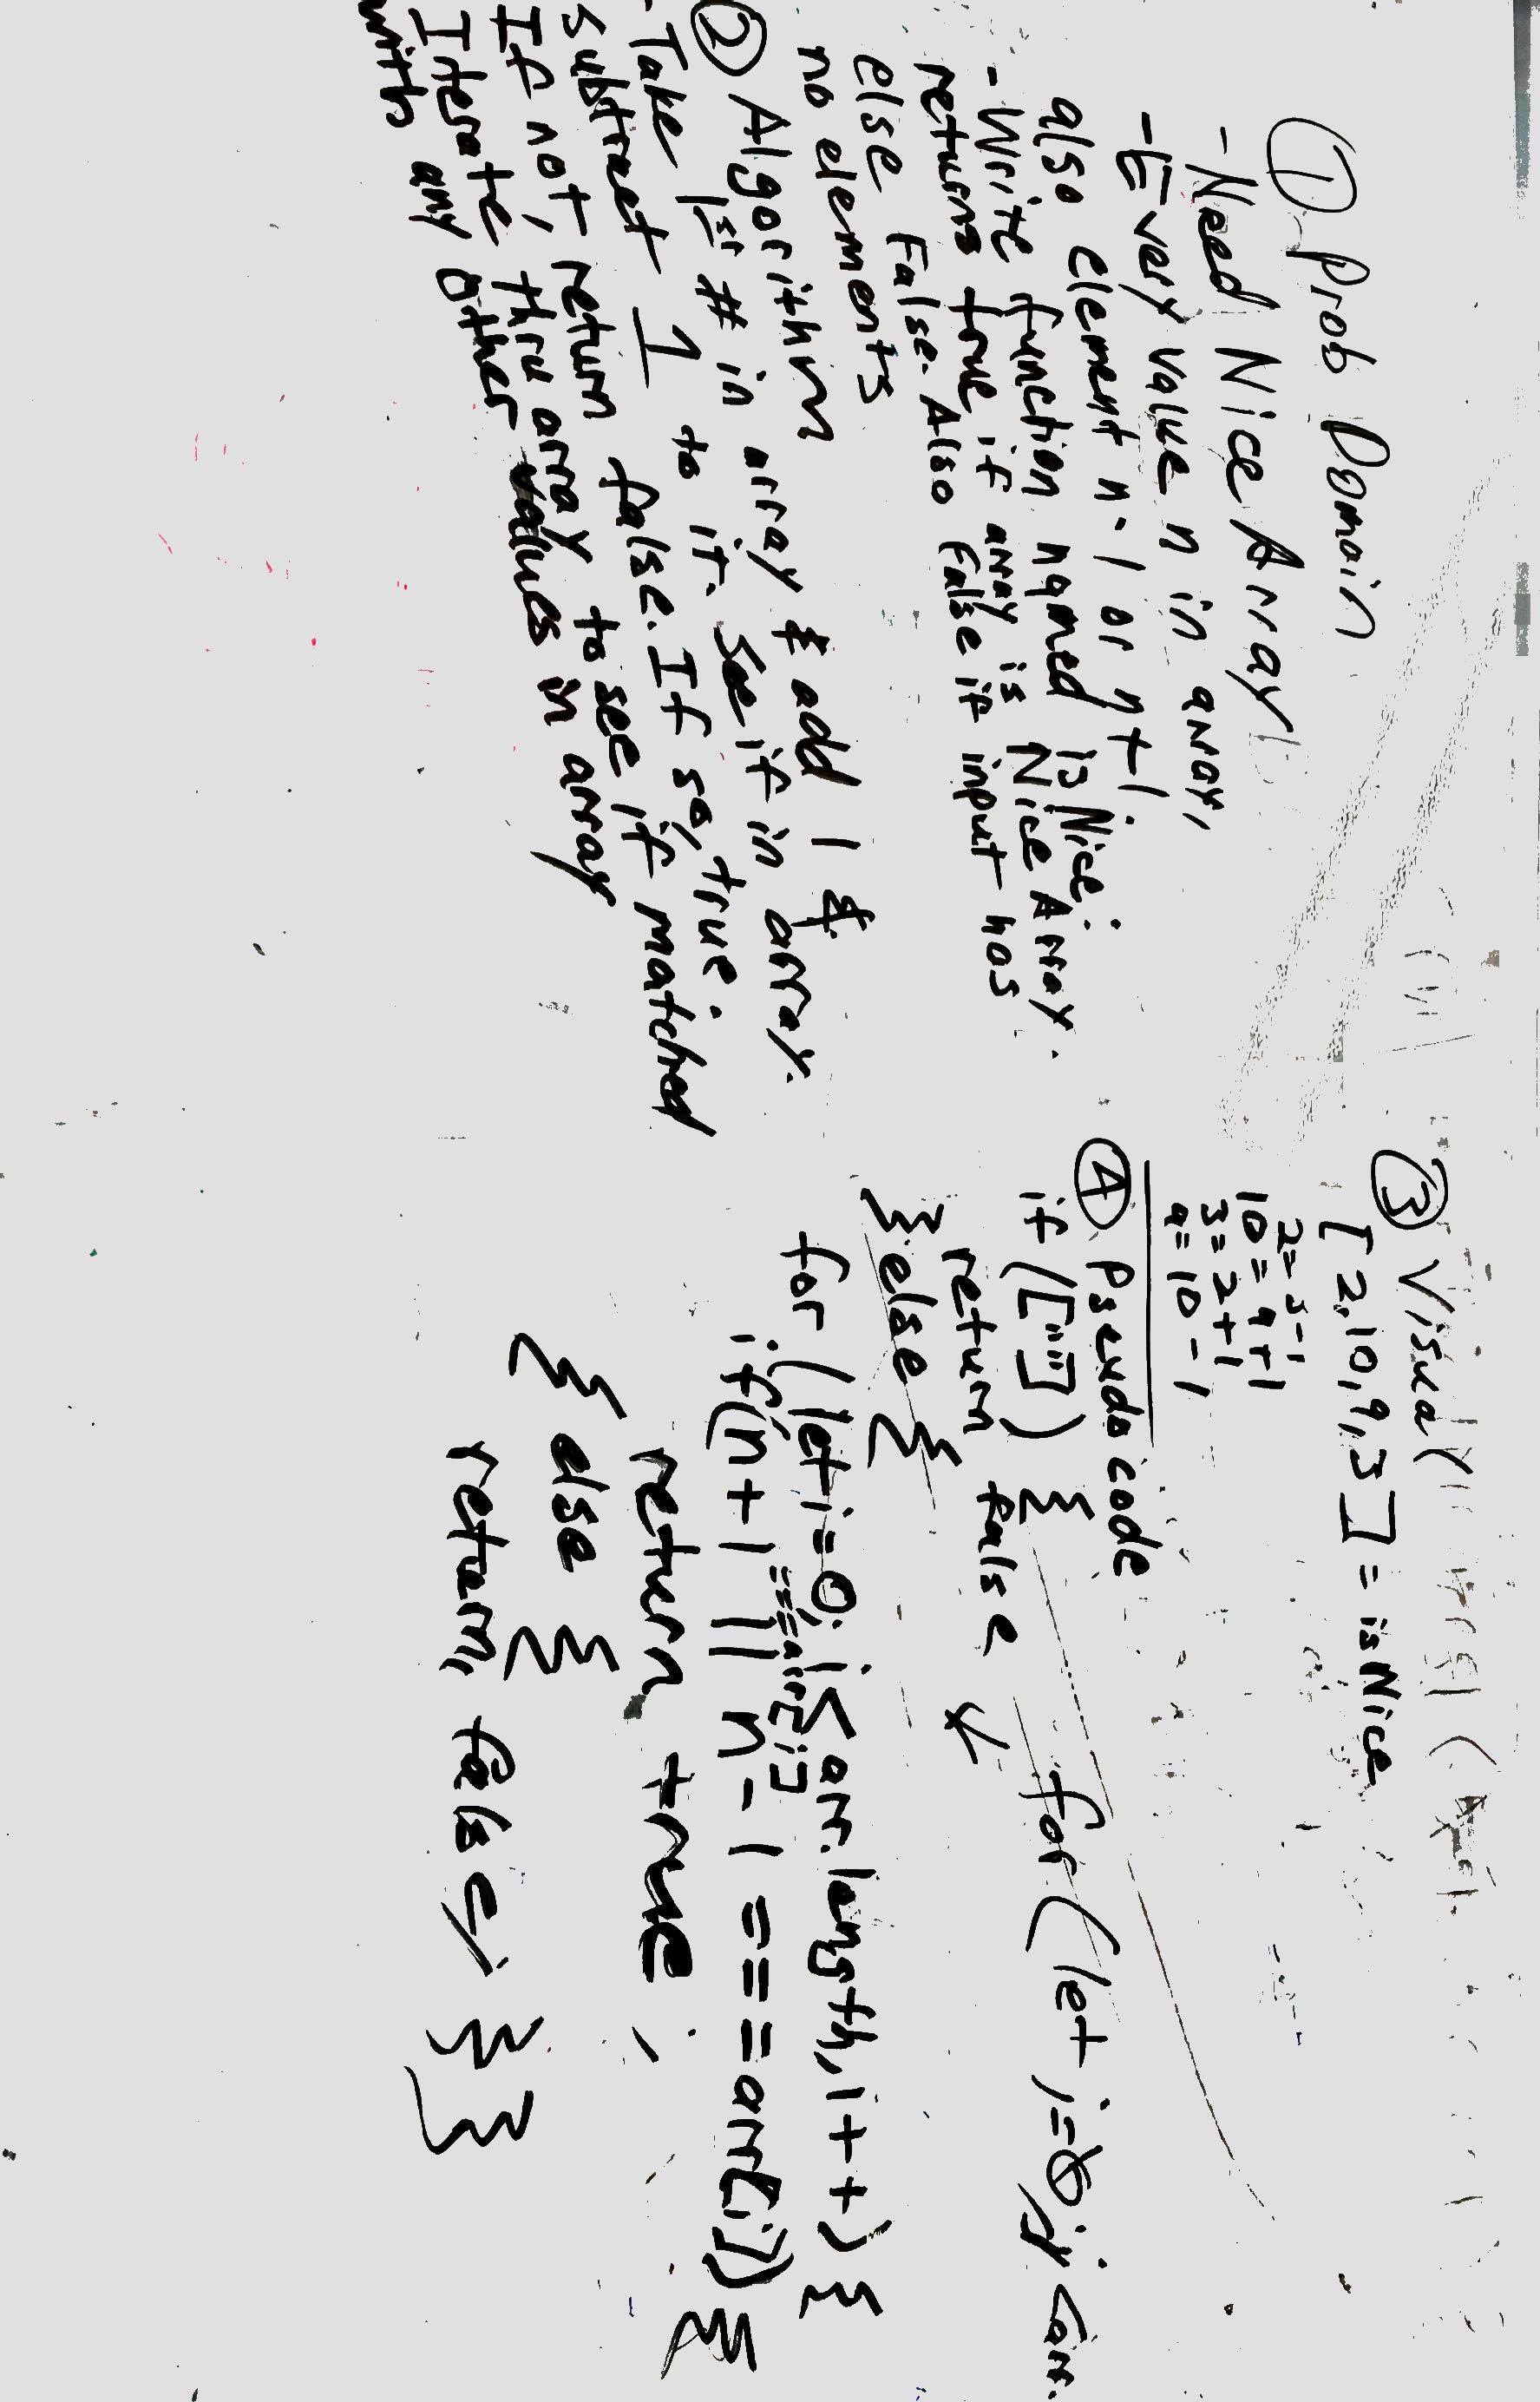 ① Prob Domain
- Need Nice Array
- Every value n in array,
also element n-1 or n+1
- Write function named isNice:
returns true if array is Nice Array.
else False. Also False if input has
no elements
② Algorithm
- Take 1st # in array & add 1 &
subtract 1 to it. See if in array.
If not, return false. If so, true.
Iterate thru array to see if matched
with any other values in array
③ Visual
[2,10,9,3] = isNice
2=3-1
10=9+1
3=2+1
9=10-1
④ Pseudo code
if ([""]) {
return false
} else {
for (let j=0; j<arr.
for (let i=0; i<arr.length, i++) {
===arr[i]
if (n+1 || n-1 === arr[i]) {
return true;
} else {
return false; } }